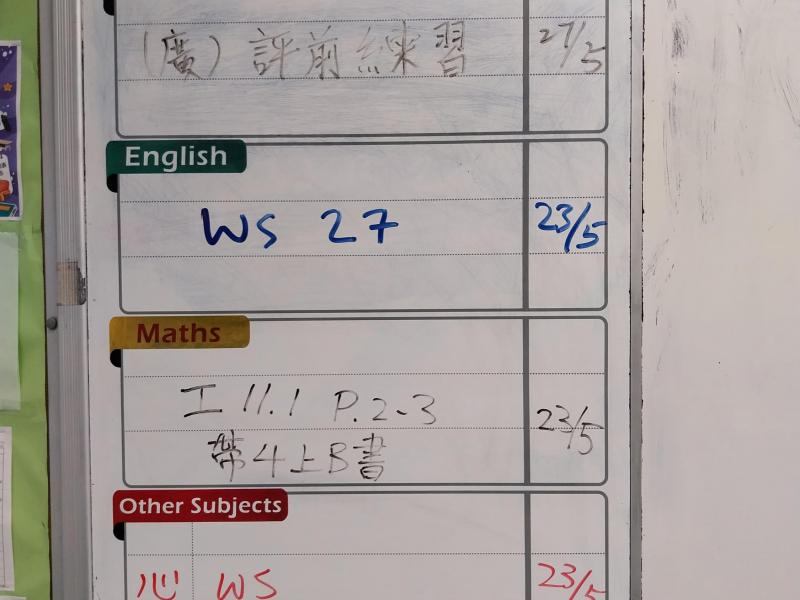 (廣) 評前練習 27/5
English
WS 27 23/5
Maths
工 11.1 P.2-3 23/5
帶4上B書
Other Subjects
心 WS 23/5